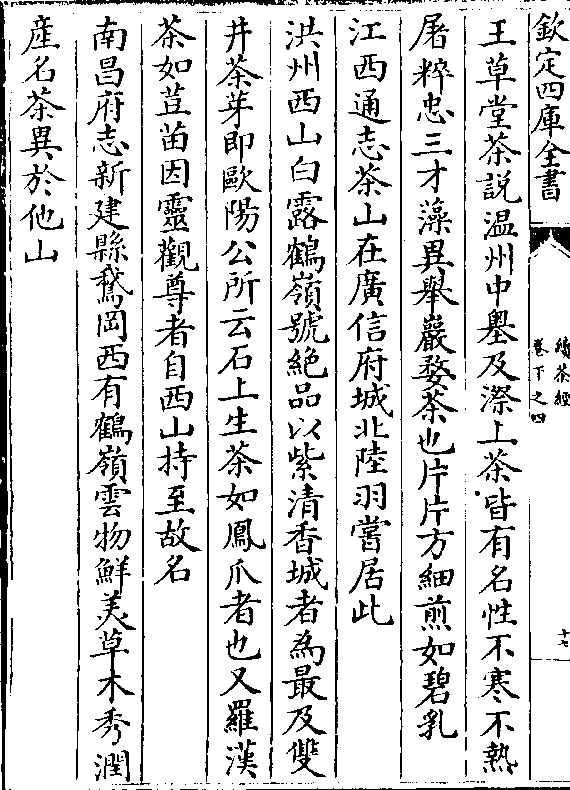 欽定四庫全書
續茶經
卷下之四
十七
王草堂茶説温州中墺及漈上茶皆有名性不寒不熱
屠粹忠三才藻異舉巖婺茶也片片方細煎如碧乳
江西通志茶山在廣信府城北陸羽嘗居此
洪州西山白露鶴嶺號絶品以紫清香城者為最及雙
井茶芽即歐陽公所云石上生茶如鳳爪者也又羅漢
茶如荳苗因靈觀尊者自西山持至故名
南昌府志新建縣鵞岡西有鶴嶺雲物鮮美草木秀潤
産名茶異於他山